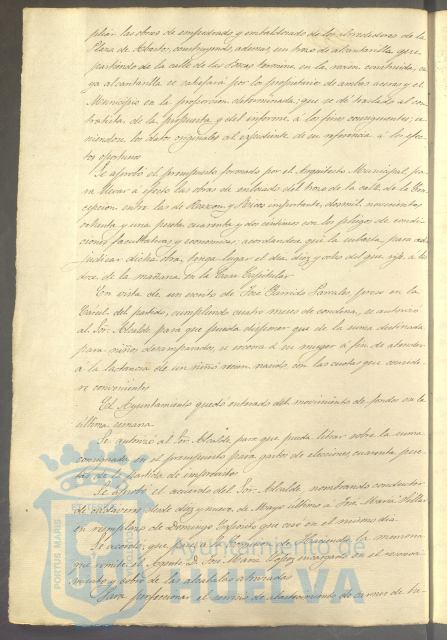 pliar las obras de empedrado y embaldosado de los alrededores de la
Plaza de Abastos, construyendo, ademas, un trozo de alcantarilla que
partiendo de la calle de las Bocas termine en la recien construida, cu-
ya alcantarilla se satisfará por los propietarios de ambas aceras y el
Municipio en la proporcion determinada; que se dé traslado al con-
tratista de la propuesta y del informe á los fines consiguientes; u-
niendose los datos originales al expediente de su referencia á los efec-
tos oportunos
Se aprobó el presupuesto formado por el Arquitecto Municipal pa-
ra llevar á efecto las obras de enlosado del trozo de la calle de la Con-
cepcion entre las de Rascon y Ricos importante, dos mil novecientos
ochenta y una peseta cuarenta y dos centimos con los pliegos de condi-
ciones facultativas y economicas, acordandose que la subasta para ad-
judicar dicha obra, tenga lugar el dia diez y ocho del que rije á las
doce de la mañana en la Casa Capitular
En vista de un escrito de José Garrido preso en la
Carcel del partido, cumpliendo cuatro meses de condena, se autorizó
al Sor. Alcalde para que pueda disponer que de la suma destinada
para niños desamparados, se socorra á su mujer á fin de atender
á la lactancia de un niño recien nacido, con las cuotas que conside-
re convenientes
El Ayuntamiento quedó enterado del movimiento de fondos en la
última semana
Se autorizó al Sor. Alcalde, para que pueda librar sobre la suma
consignada en el presupuesto para gastos de elecciones cuarenta pese-
tas de la partida de imprevistos
Se aprobó el acuerdo del Sor. Alcalde, nombrando conductor
de cadaveres, desde diez y nueve de Mayo ultimo á José Maria
en remplazo de Domingo que cesó en el mismo dia
Se acordó, que pase á la Comision de Hacienda la memoria
que remite el Agente D. José Maria Lopez encargado en el reconoci-
miento y cobro de las alcabalas
Para perfeccionar el servicio de abastecimiento de carnes de
Ayuntamiento de
HUELVA
PORTUS MARIS